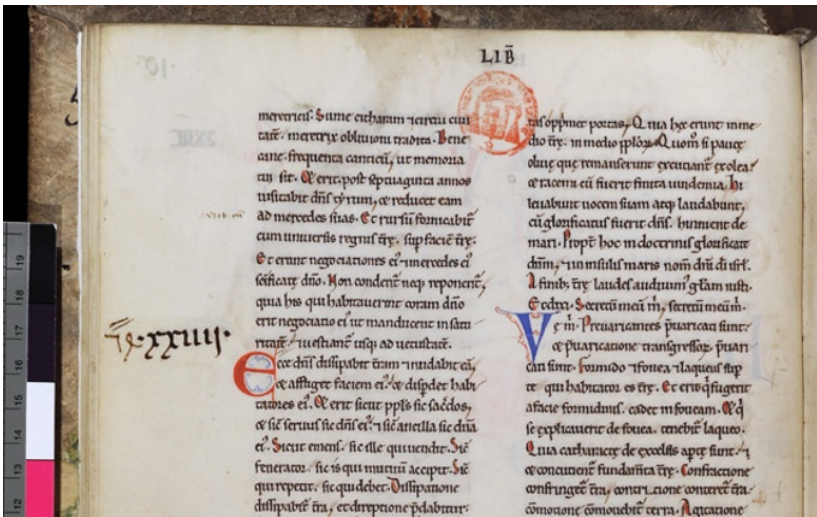 LIB̄
meretricis. Sume citharam ⁊ circui civi
tatē. meretrix oblivioni tradita. Bene
cane. frequenta canticū, ut memoria
tui sit. Et erit. post septuaginta annos
visitabit dn̄s tyrum, et reducet eam
ad mercedes suas. Et rursū fornicabit̄
cum universis regnis tr̄e. sup faciē tr̄e.
Et erunt negociationes ei᾽ ⁊ mercedes ei᾽
sc̄ificate dn̄o. Non condent̄ neq; reponent̄,
quia his qui habitaverint coram dn̄o
erit negociatio ei᾽ ut manducent in satu
ritatē ⁊ vestiant̄ usq; ad vetustatē.
xxiiii.
Ecce dn̄s dissipabit t̄ram ⁊ nudabit eā,
et affliget faciem ei᾽. et disp̄det habi
tatores ei᾽. Et erit sicut ppl̄s sic sac̄dos,
et sic servus sic dn̄s ei᾽. ⁊ sic̄ ancilla sic dn̄a
ei᾽. Sicut emens. sic ille qui vendit. Sic̄
fenerator. sic is qui mutuū accipit. Sic̄
qui repetit. sic qui debet. Dissipatione
dissipabit̄ t̄ra, et direptione p̄dabitur.
tas opprimet portas, Quia hec erunt in me
dio tr̄e. in medio pplōꝝ. Quom̄ si pauce
olive que remanserunt excutiant̄ ex olea.
et racemi cū fuerit finita vindemia. Hi
levabunt vocem suam atq; laudabunt,
cū glorificatus fuerit dn̄s. hinnient de
mari. Propt̄ hoc in doctrinis glorificate
dn̄m, ⁊ in insulis maris nom̄ dn̄i di isrl̄.
A finib; tr̄e laudes audivim᾽ gl̄am iusti.
Et dixi. Secretū meū m̄, secretū meū m̄.
Ve m̄. Prevaricantes p̄varicati sunt.
et p̄varicatione transgressoꝝ p̄vari
cati sunt. Formido ⁊ fovea ⁊ laqueus sup
te qui habitator es tr̄e. Et erit q̄ fugerit
a facie formidinis. cadet in foveam. Et q̄
se explicuerit de fovea. tenebit̄ laqueo.
Quia catharacte de excelsis apte sunt. ⁊
et concutient̄ fundam̄ta tr̄e. Confractione
confringet̄ t̄ra, contricione conteret̄ t̄ra.
cōmotione cōmovebit̄ terra. Agitatione